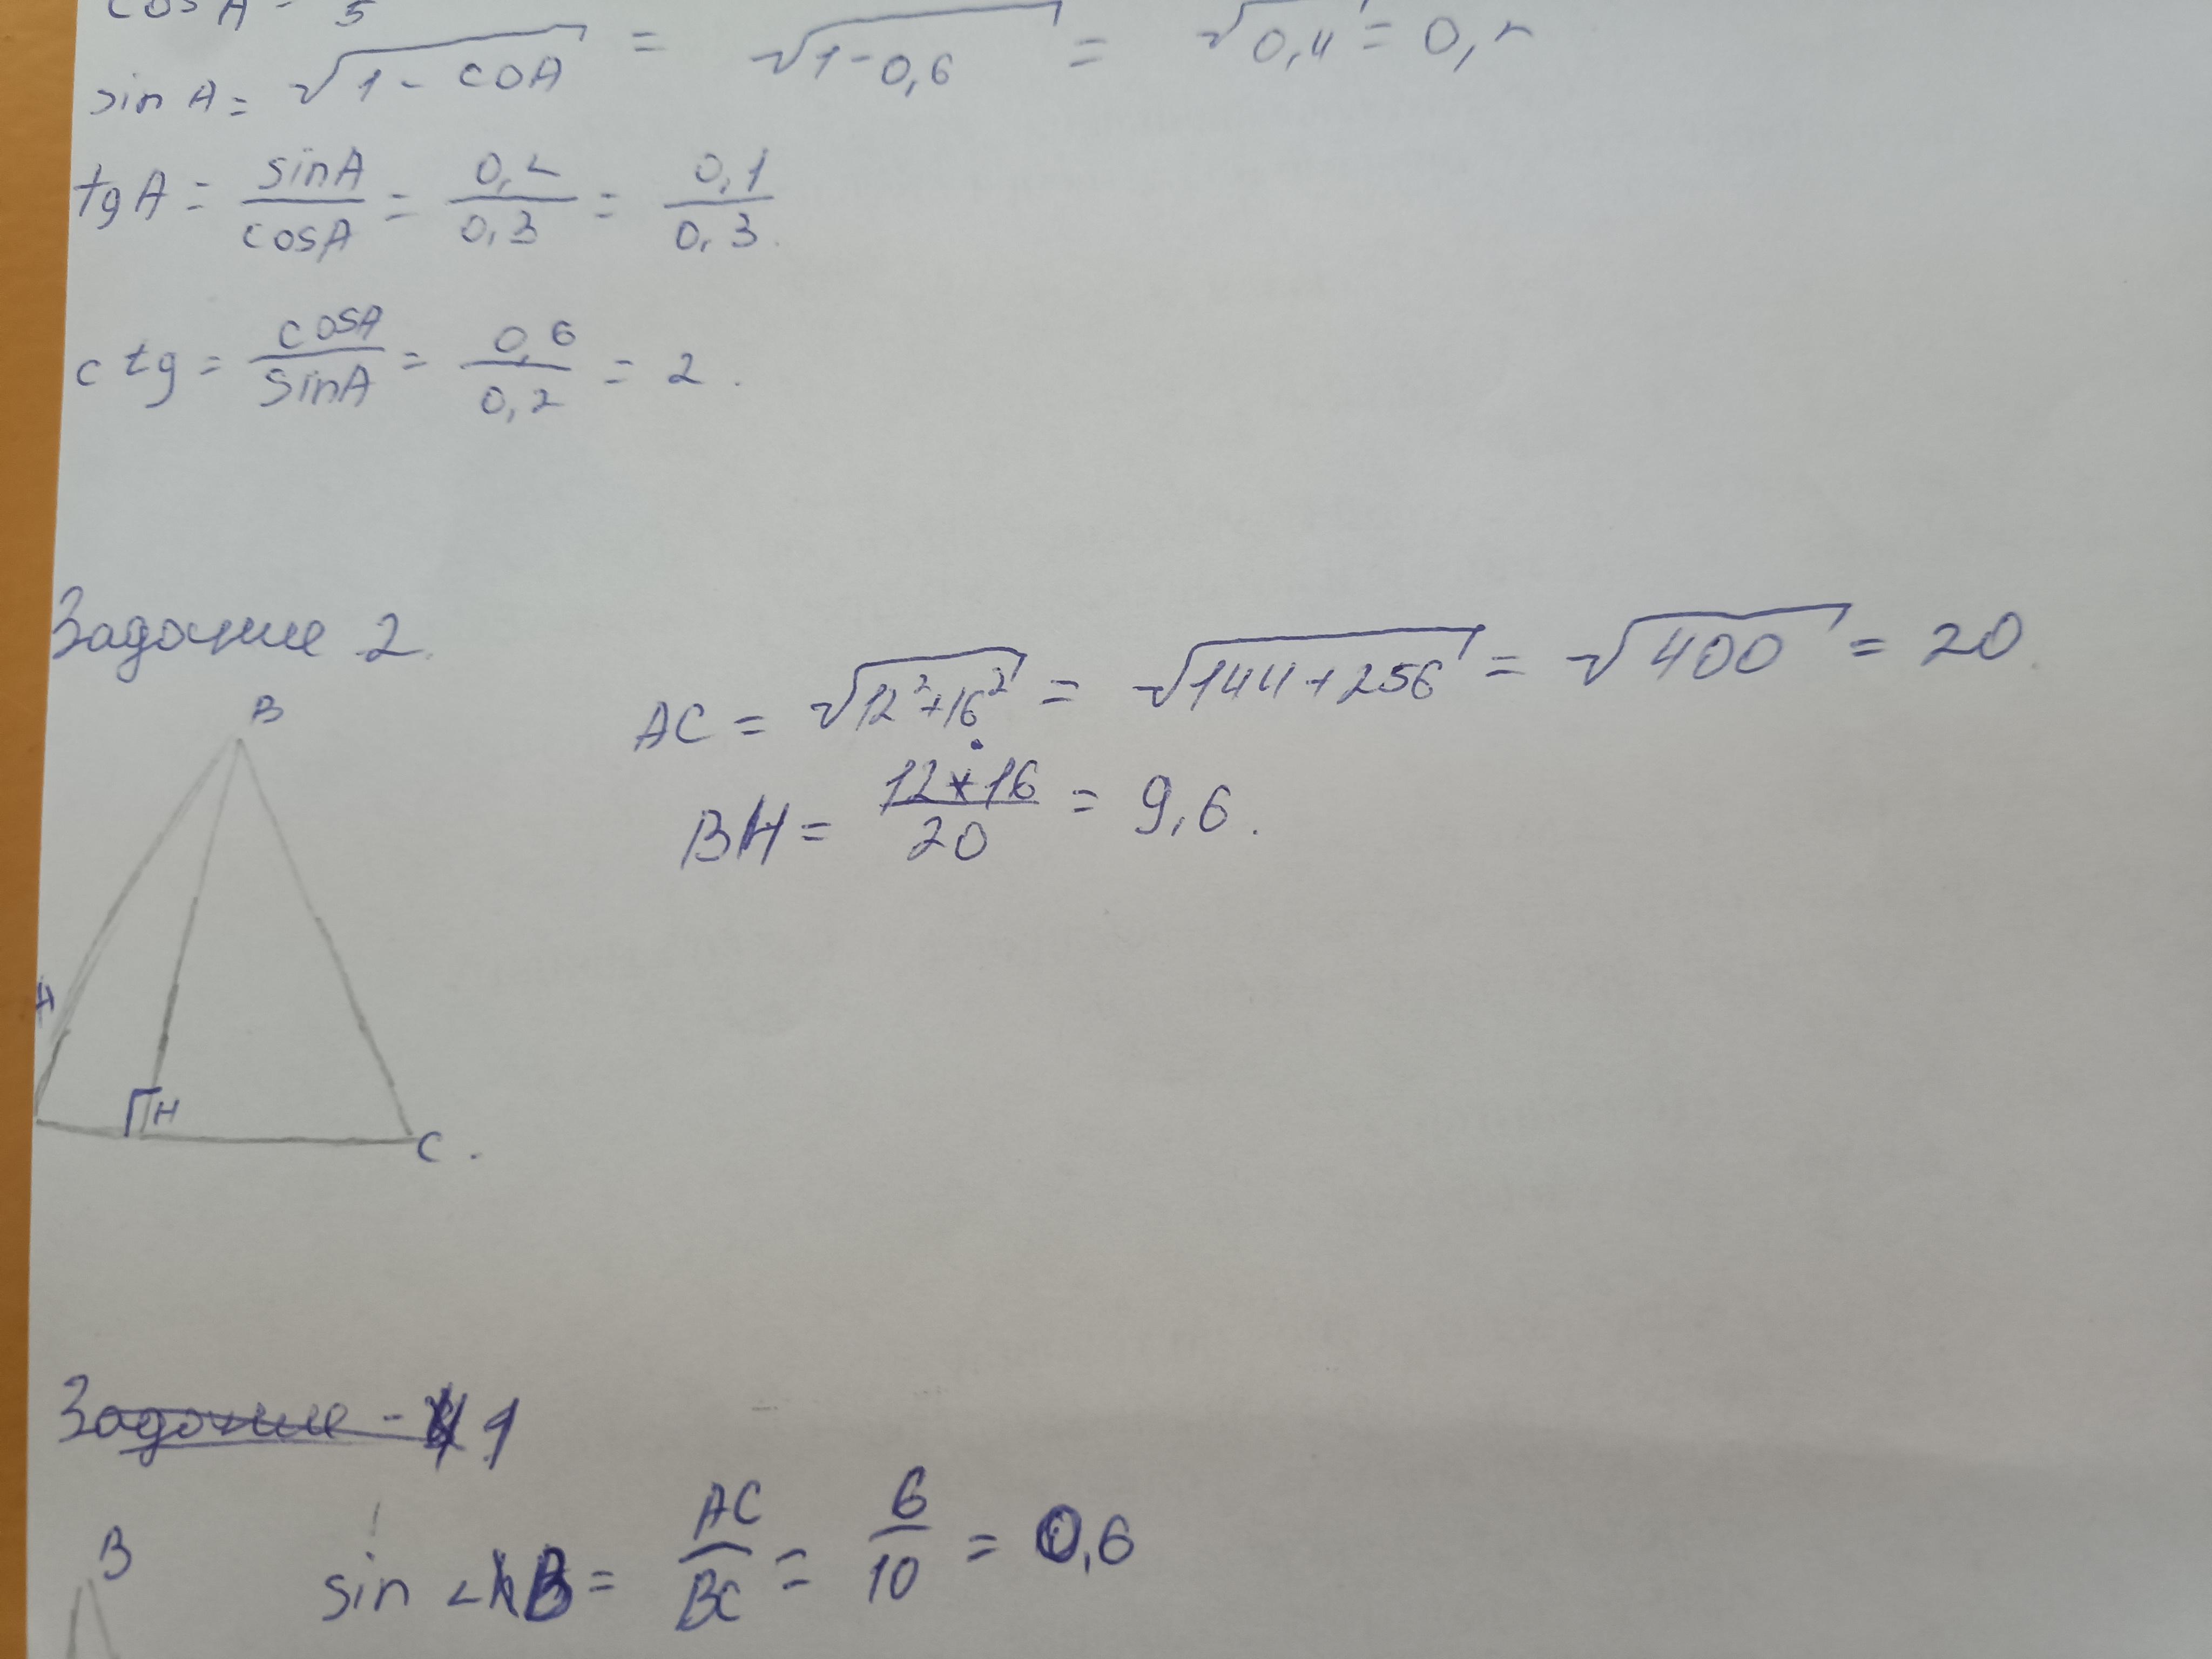 cos A = 5
sin A = √1 - coA = √1 - 0,6 = √0,4 = 0,2
tg A = sinA/cosA = 0,2/0,3 = 0,1/0,3.
ctg = cosA/sinA = 0,6/0,2 = 2.
Задание 2.
AC = √12²+16² = √144+256 = √400 = 20.
BH = 12*16/20 = 9,6.
B
A
H
C.
Задание - 1
B
sin ∠B = AC/BC = 6/10 = 0,6